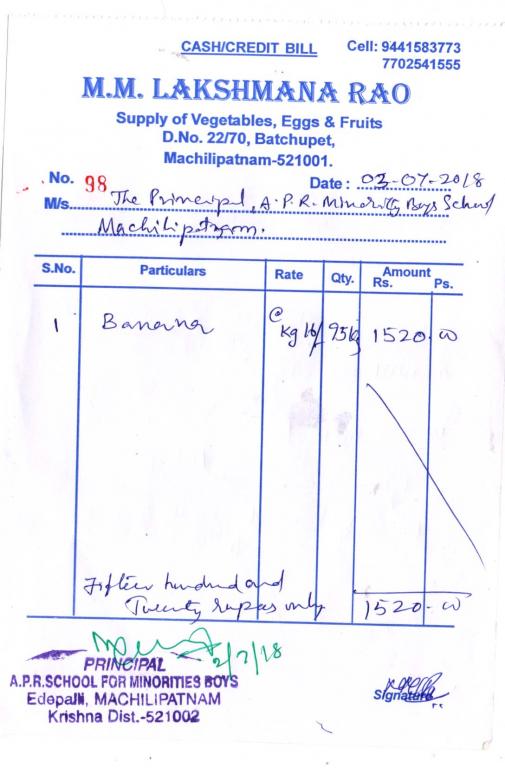 CASH/CREDIT BILL
Cell: 9441583773
7702541555
M.M. LAKSHMANA RAO
Supply of Vegetables, Eggs & Fruits
D.No. 22/70, Batchupet,
Machilipatnam-521001.
No. 98
Date : 03-07-2018
M/s. The Principal, A.P.R. Minority Boys School
Machilipatnam.
S.No. Particulars Rate Qty. Amount
Rs. Ps.
1 Banana @ Kg 16/ 95kg 1520.00
Fifteen hundred and
Twenty rupees only 1520-00
2/7/18
PRINCIPAL
A.P.R.SCHOOL FOR MINORITIES BOYS
Edepalli, MACHILIPATNAM
Krishna Dist.-521002
Signature